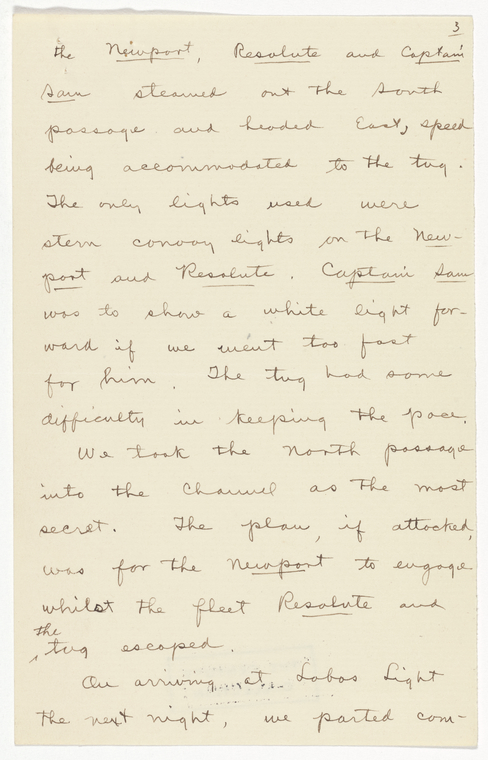 3
the Newport, Resolute and Captain
Sam steamed out the South
passage and headed East, speed
being accommodated to the tug.
The only lights used were
stern convoy lights on the New-
port and Resolute. Captain Sam
was to show a white light for-
ward if we went too fast
for him. The tug had some
difficulty in keeping the pace.
We took the North passage
into the Channel as the most
secret. The plan, if attacked,
was for the Newport to engage
whilst the fleet Resolute and
the
tug escaped.
On arriving at Lobos Light
the next night, we parted com-